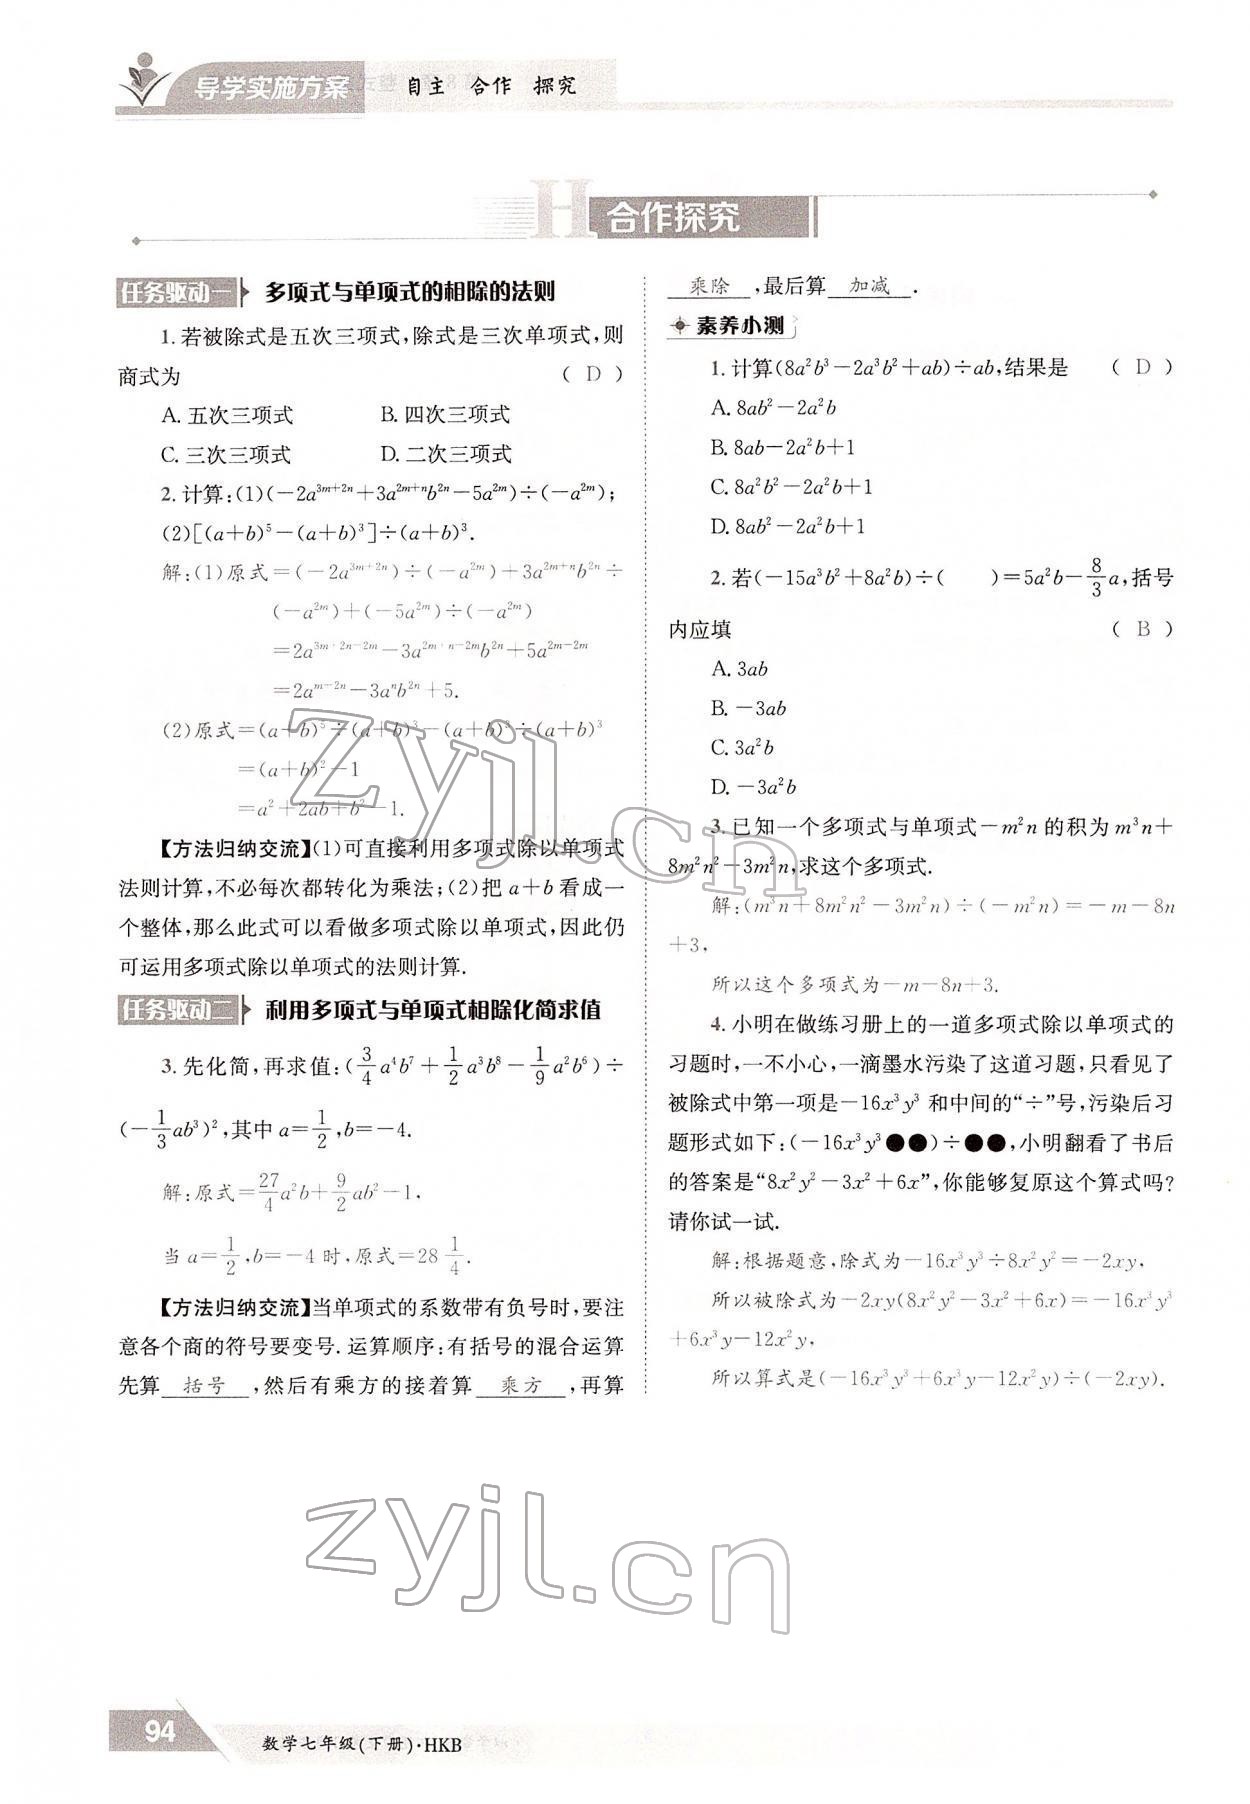 导学实施方案 自主 合作 探究
H 合作探究
任务驱动一 多项式与单项式的相除的法则
1. 若被除式是五次三项式,除式是三次单项式,则
商式为 ( D )
A. 五次三项式 B. 四次三项式
C. 三次三项式 D. 二次三项式
2. 计算:(1)(-2a³ᵐ⁺²ⁿ+3a²ᵐ⁺ⁿb²ⁿ-5a²ᵐ)÷(-a²ᵐ);
(2)[(a+b)⁵-(a+b)³]÷(a+b)³.
解:(1)原式=(-2a³ᵐ⁺²ⁿ)÷(-a²ᵐ)+3a²ᵐ⁺ⁿb²ⁿ÷
(-a²ᵐ)+(-5a²ᵐ)÷(-a²ᵐ)
=2a³ᵐ⁺²ⁿ⁻²ᵐ-3a²ᵐ⁺ⁿ⁻²ᵐb²ⁿ+5a²ᵐ⁻²ᵐ
=2aᵐ⁻²ⁿ-3aⁿb²ⁿ+5.
(2)原式=(a+b)⁵÷(a+b)³-(a+b)³÷(a+b)³
=(a+b)²-1
=a²+2ab+b²-1.
【方法归纳交流】(1)可直接利用多项式除以单项式
法则计算,不必每次都转化为乘法;(2)把 a+b 看成一
个整体,那么此式可以看做多项式除以单项式,因此仍
可运用多项式除以单项式的法则计算.
任务驱动二 利用多项式与单项式相除化简求值
3. 先化简,再求值:(3/4 a⁴b⁷+1/2 a³b⁸-1/9 a²b⁶)÷
(-1/3 ab³)²,其中 a=1/2,b=-4.
解:原式=27/4 a²b+9/2 ab²-1,
当 a=1/2,b=-4 时,原式=28 1/4.
【方法归纳交流】当单项式的系数带有负号时,要注
意各个商的符号要变号. 运算顺序:有括号的混合运算
先算 括号 ,然后有乘方的接着算 乘方 ,再算
乘除 ,最后算 加减 .
素养小测
1. 计算(8a²b³-2a³b²+ab)÷ab,结果是 ( D )
A. 8ab²-2a²b
B. 8ab-2a²b+1
C. 8a²b²-2a²b+1
D. 8ab²-2a²b+1
2. 若(-15a³b²+8a²b)÷( )=5a²b-8/3 a,括号
内应填 ( B )
A. 3ab
B. -3ab
C. 3a²b
D. -3a²b
3. 已知一个多项式与单项式-m²n 的积为 m³n+
8m²n²-3m²n,求这个多项式.
解:(m³n+8m²n²-3m²n)÷(-m²n)=-m-8n
+3,
所以这个多项式为-m-8n+3.
4. 小明在做练习册上的一道多项式除以单项式的
习题时,一不小心,一滴墨水污染了这道习题,只看见了
被除式中第一项是-16x³y³ 和中间的“÷”号,污染后习
题形式如下:(-16x³y³●●)÷●●,小明翻看了书后
的答案是“8x²y²-3x²+6x”,你能够复原这个算式吗?
请你试一试.
解:根据题意,除式为-16x³y³÷8x²y²=-2xy,
所以被除式为-2xy(8x²y²-3x²+6x)=-16x³y³
+6x³y-12x²y,
所以算式是(-16x³y³+6x³y-12x²y)÷(-2xy).
Zyjl.cn
zyjl.cn
94 数学七年级(下册)·HKB